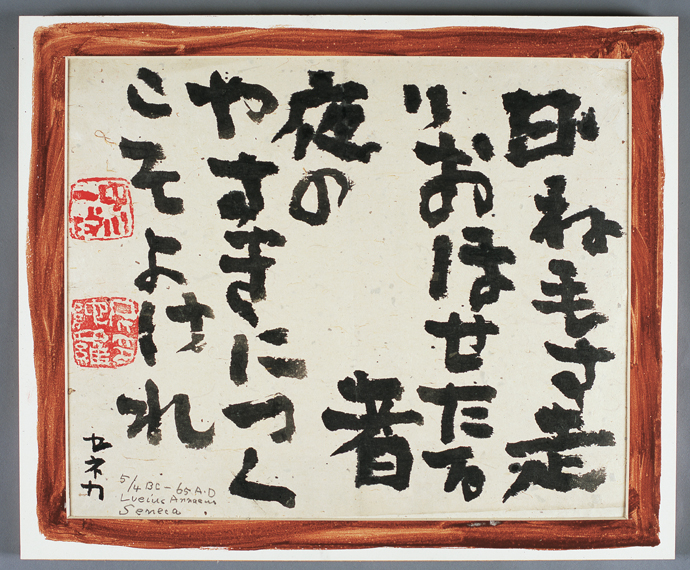 日ね毛す走
りおほせたる
者
夜の
やすきにつく
こそよけれ
中川一政
セネカ
5/4 BC - 65 A.D
Lucius Annaeus
Seneca